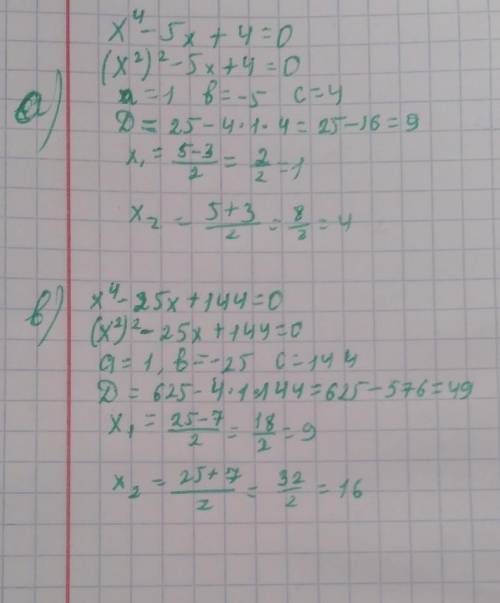 a) x⁴ - 5x + 4 = 0
(x²)² - 5x + 4 = 0
a = 1 b = -5 c = 4
D = 25 - 4·1·4 = 25 - 16 = 9
x₁ = (5-3)/2 = 2/2 = 1
x₂ = (5+3)/2 = 8/2 = 4
b) x⁴ - 25x + 144 = 0
(x²)² - 25x + 144 = 0
a = 1, b = -25 c = 144
D = 625 - 4·1·144 = 625 - 576 = 49
x₁ = (25-7)/2 = 18/2 = 9
x₂ = (25+7)/2 = 32/2 = 16